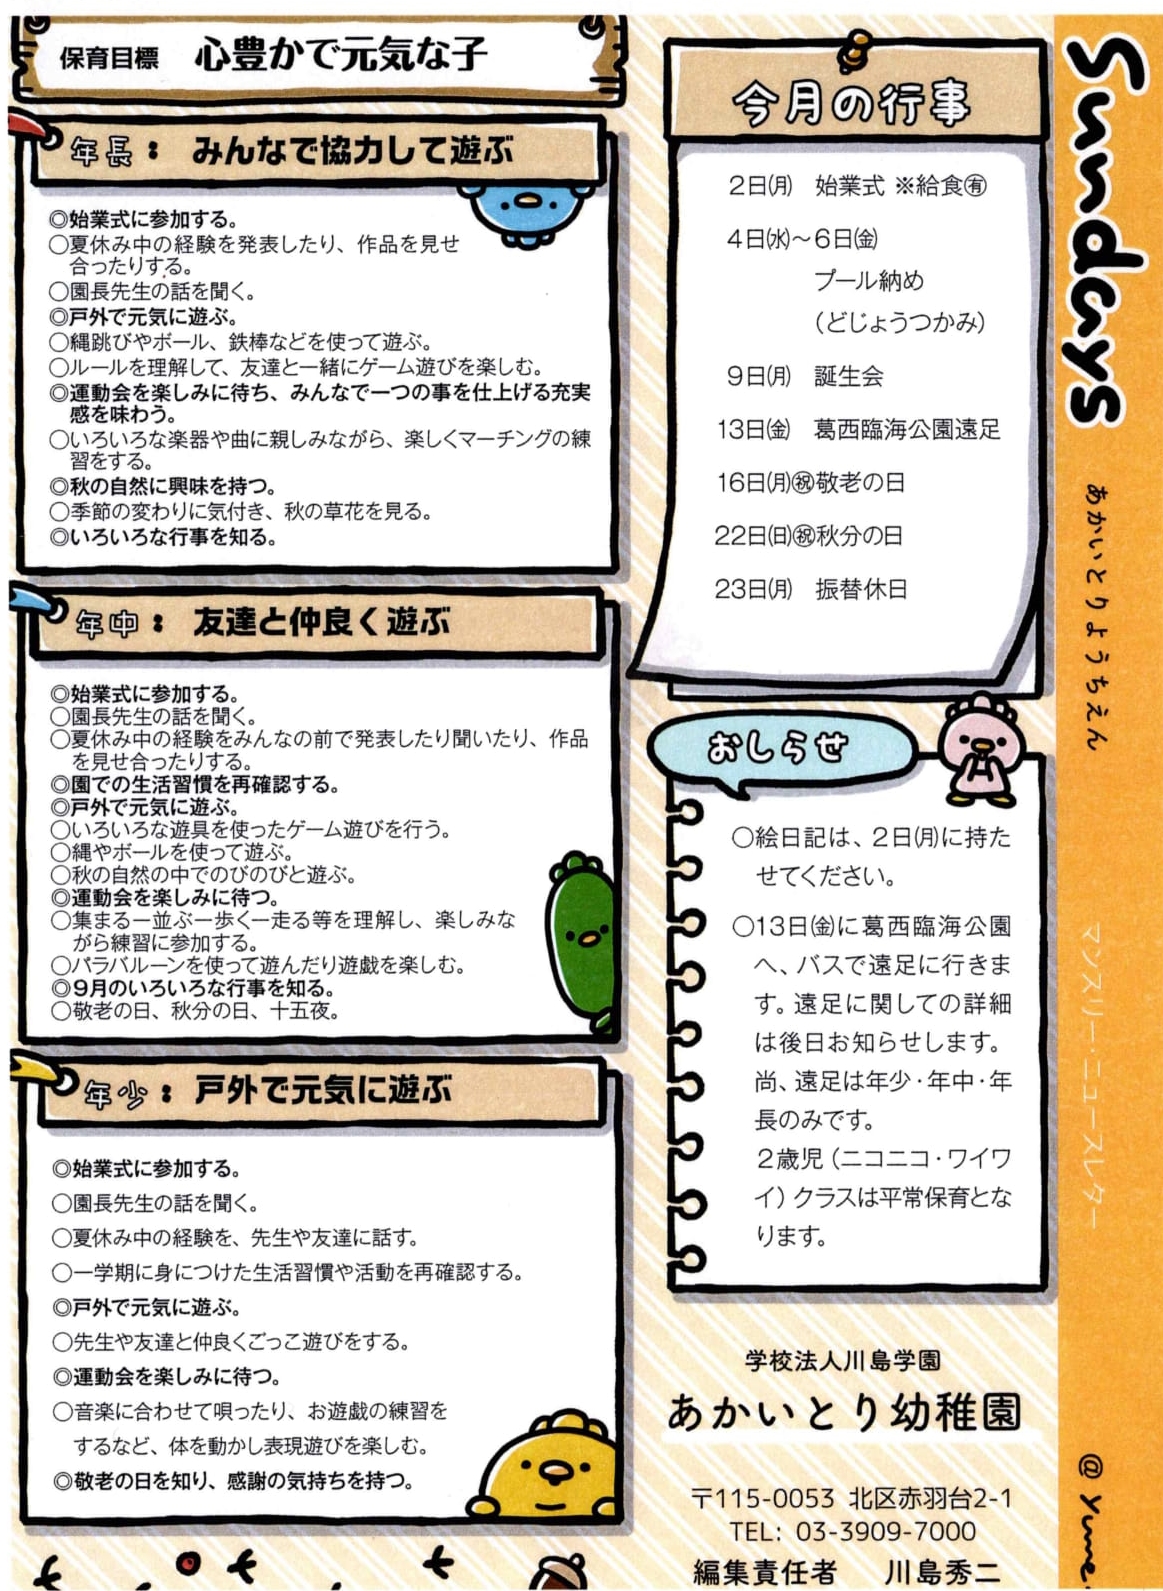 保育目標 心豊かで元気な子
年長： みんなで協力して遊ぶ
◎始業式に参加する。
○夏休み中の経験を発表したり、作品を見せ
合ったりする。
○園長先生の話を聞く。
◎戸外で元気に遊ぶ。
○縄跳びやボール、鉄棒などを使って遊ぶ。
○ルールを理解して、友達と一緒にゲーム遊びを楽しむ。
◎運動会を楽しみに待ち、みんなで一つの事を仕上げる充実
感を味わう。
○いろいろな楽器や曲に親しみながら、楽しくマーチングの練
習をする。
◎秋の自然に興味を持つ。
○季節の変わりに気付き、秋の草花を見る。
◎いろいろな行事を知る。
年中： 友達と仲良く遊ぶ
◎始業式に参加する。
○園長先生の話を聞く。
○夏休み中の経験をみんなの前で発表したり聞いたり、作品
を見せ合ったりする。
◎園での生活習慣を再確認する。
◎戸外で元気に遊ぶ。
○いろいろな遊具を使ったゲーム遊びを行う。
○縄やボールを使って遊ぶ。
○秋の自然の中でのびのびと遊ぶ。
◎運動会を楽しみに待つ。
○集まるー並ぶー歩くー走る等を理解し、楽しみな
がら練習に参加する。
○パラバルーンを使って遊んだり遊戯を楽しむ。
◎9月のいろいろな行事を知る。
○敬老の日、秋分の日、十五夜。
年少： 戸外で元気に遊ぶ
◎始業式に参加する。
○園長先生の話を聞く。
○夏休み中の経験を、先生や友達に話す。
○一学期に身につけた生活習慣や活動を再確認する。
◎戸外で元気に遊ぶ。
○先生や友達と仲良くごっこ遊びをする。
◎運動会を楽しみに待つ。
○音楽に合わせて唄ったり、お遊戯の練習を
するなど、体を動かし表現遊びを楽しむ。
◎敬老の日を知り、感謝の気持ちを持つ。
今月の行事
2日㈪ 始業式 ※給食㊒
4日㈬～6日㈮
プール納め
（どじょうつかみ）
9日㈪ 誕生会
13日㈮ 葛西臨海公園遠足
16日㈪㊗敬老の日
22日㈰㊗秋分の日
23日㈪ 振替休日
おしらせ
○絵日記は、2日㈪に持た
せてください。
○13日㈮に葛西臨海公園
へ、バスで遠足に行きま
す。遠足に関しての詳細
は後日お知らせします。
尚、遠足は年少・年中・年
長のみです。
2歳児（ニコニコ・ワイワ
イ）クラスは平常保育とな
ります。
学校法人川島学園
あかいとり幼稚園
〒115-0053 北区赤羽台2-1
TEL: 03-3909-7000
編集責任者 川島秀二
Sundays
あかいとりようちえん
マンスリー・ニュースレター
@ Yume.